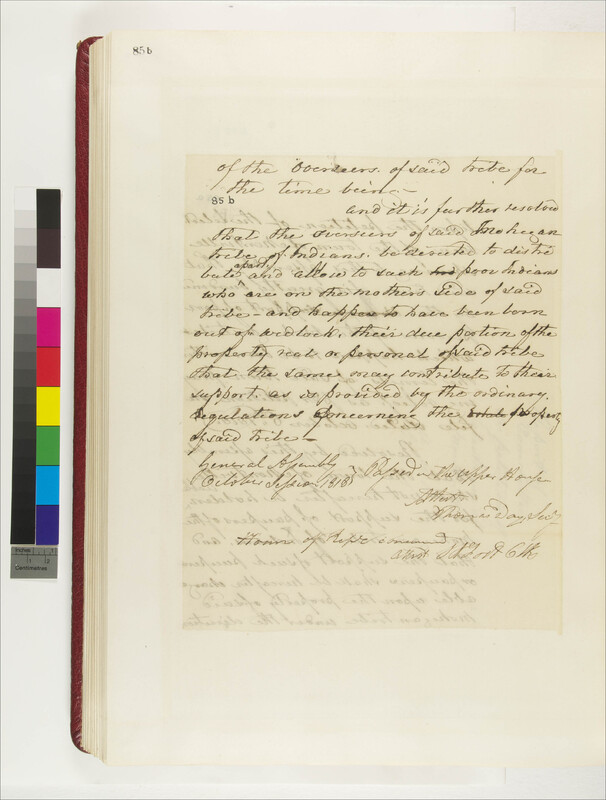 85 b
of the Overseers of said tribe for
the time being –
85 b
and it is further resolved
that the overseers of said Mohegan
tribe of Indians, be directed to distri
bute apart and allow to such poor Indians
who are on the mothers side of said
tribe – and happen to have been born
out of wedlock, their due portion of the
property real or personal of said tribe
that the same may contribute to their
support, as is provided by the ordinary
regulations concerning the property
of said tribe –
General Assembly
October Session 1818 } Passed in the upper House
Attest
Thomas Day Secy
House of Reps concurred
Attest Clk
Inches
Centimetres